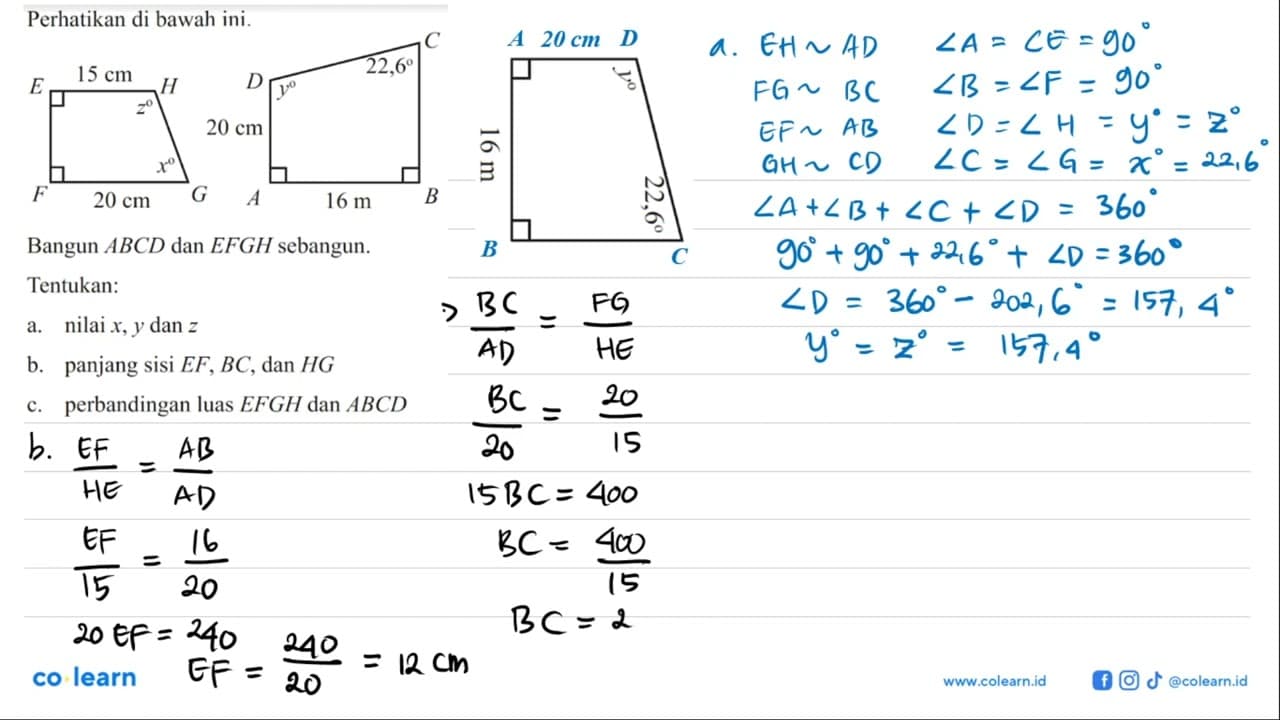 Perhatikan di bawah ini.
E 15 cm H
z°
x°
F 20 cm G
C
D 22,6°
y°
20 cm
A 16 m B
A 20 cm D
y°
16 m
22,6°
B C
Bangun ABCD dan EFGH sebangun.
Tentukan:
a. nilai x, y dan z
b. panjang sisi EF, BC, dan HG
c. perbandingan luas EFGH dan ABCD
a. EH ~ AD ∠A = ∠E = 90°
FG ~ BC ∠B = ∠F = 90°
EF ~ AB ∠D = ∠H = y° = z°
GH ~ CD ∠C = ∠G = x° = 22,6°
∠A + ∠B + ∠C + ∠D = 360°
90° + 90° + 22,6° + ∠D = 360°
∠D = 360° - 202,6° = 157,4°
y° = z° = 157,4°
b. EF/HE = AB/AD
EF/15 = 16/20
20 EF = 240
EF = 240/20 = 12 cm
BC/AD = FG/HE
BC/20 = 20/15
15BC = 400
BC = 400/15
BC = 2
co learn
www.colearn.id
@colearn.id